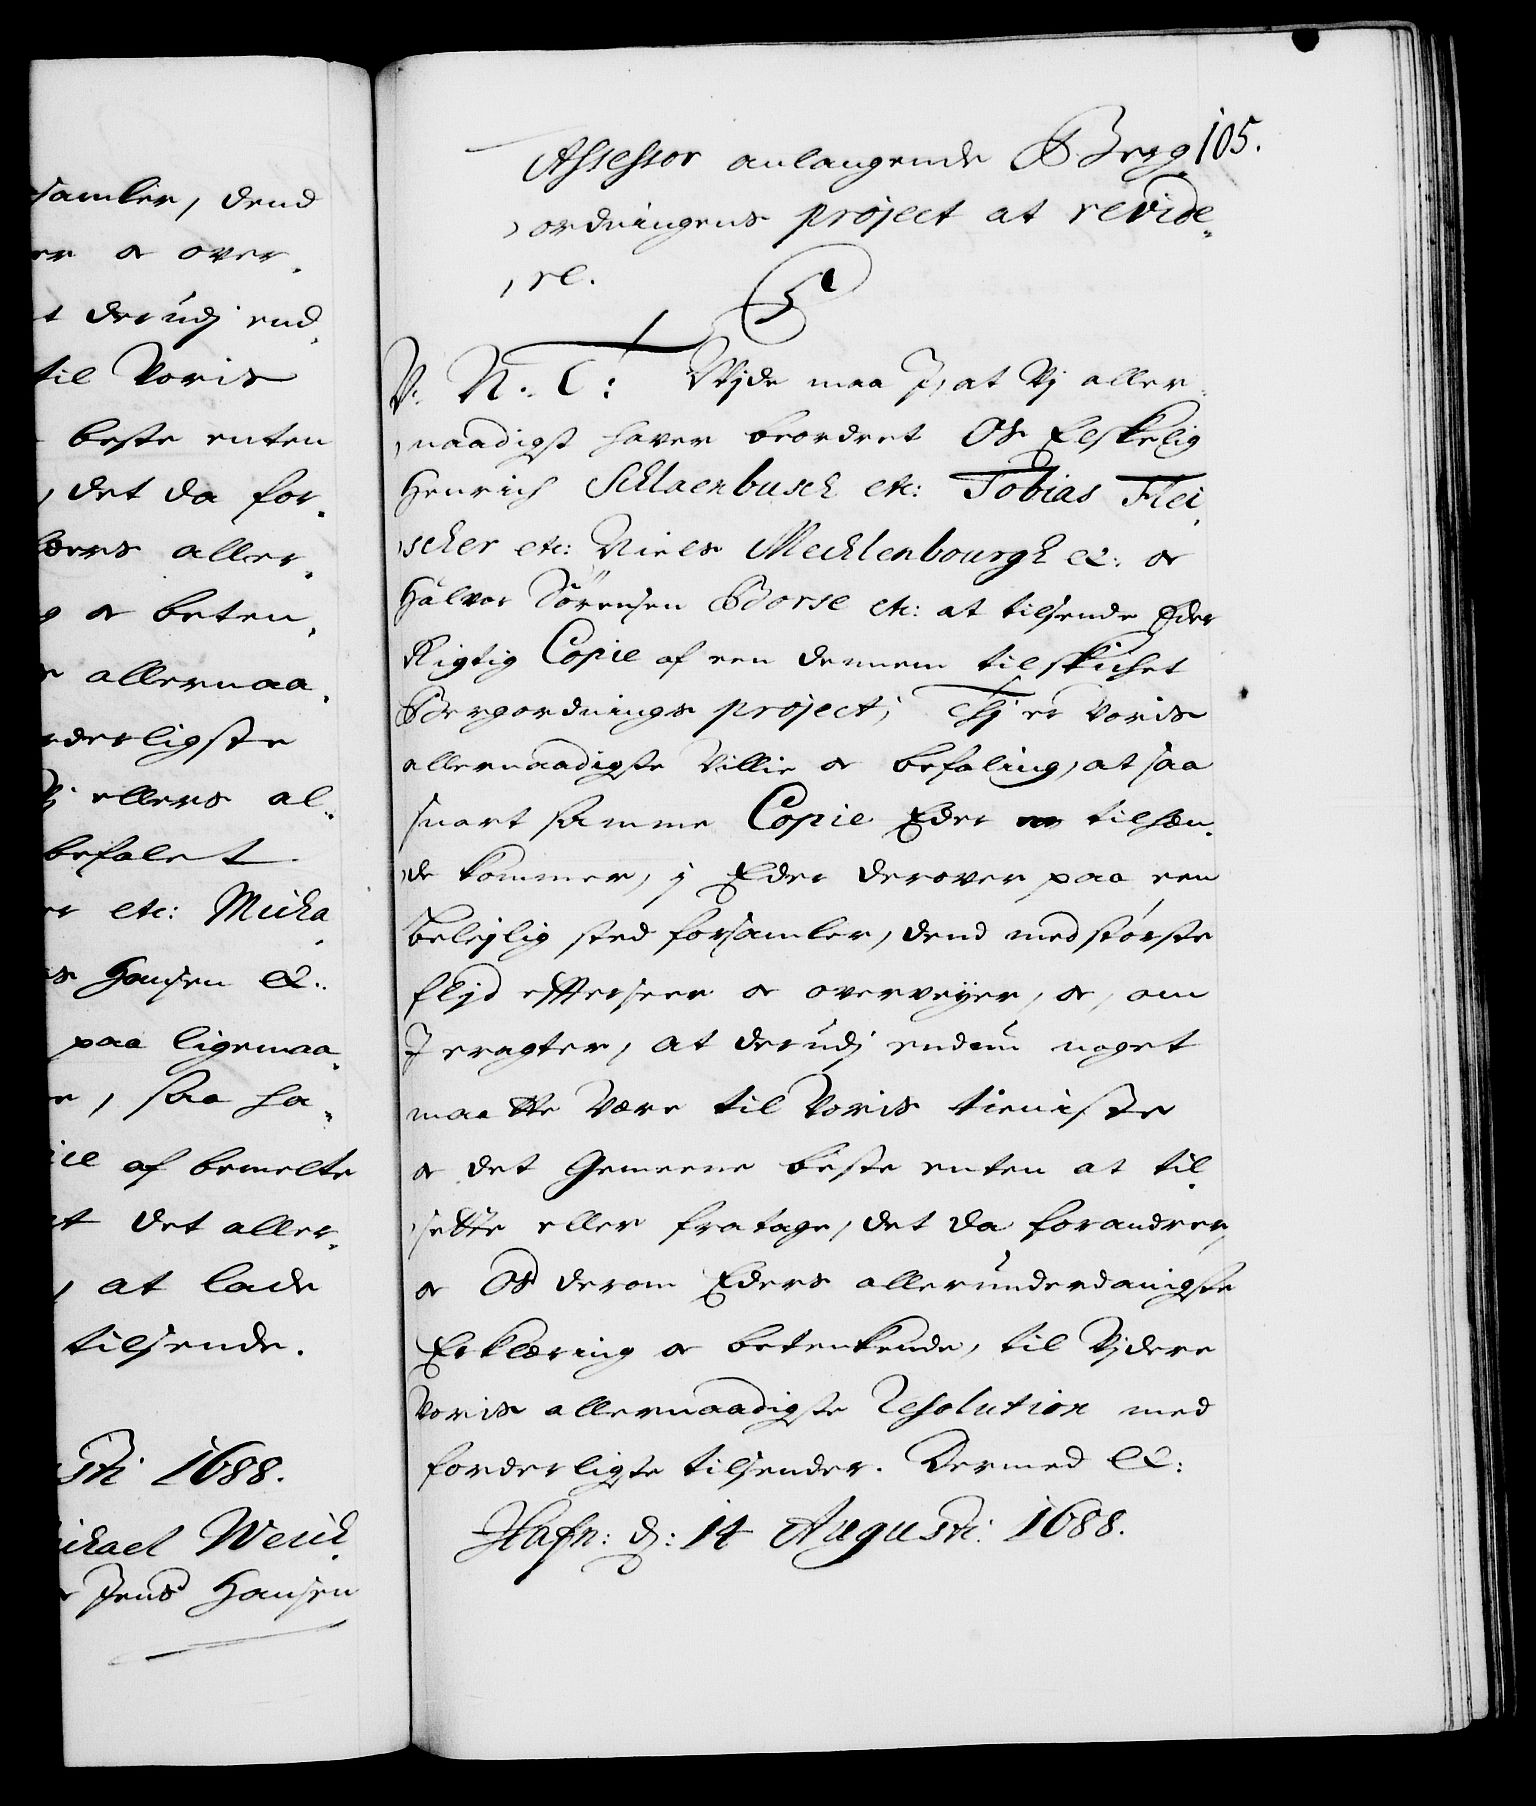 samler, dend
er og over„
t derudj end„
til Voris
beste enten
, det da for„
aller„
g og beten„
allernaa„
derligste
Vj ellers al„
befalet
er etc: Micha„
Hansen etc:
paa ligemaa„
, saa ha„
ice af bemelte
t det aller„
, at lade
tilsende.
sti 1688.
ichael Weich„
Jens Hansen
105.
Assessor anlangende Berg„
ordningens project at revide„
re.
C5
V. N. T: Vjde maa J, at Vj aller„
naadigst hafver beordret Os Elskelig
Henrich Schlaenbusch etc: Tobias Flei„
scher etc: Niels Mechlenbourgh etc: og
Halvor Sørensen Borse etc: at tilsende Eder
Rigtig Copie af een dennem tilskichet
Bergordnings project, Thj er Voris
allernaadigste Villie og befaling, at saa
snart samme Copie Eder tilhæn„
de kommer, j Eder derover paa een
beleylig sted forsamler, dend med største
fljd effterseer og overveyer, og, om
J eragter, at derudj endnu noget
maatte være til Voris tieniste
og det Gemeene beste enten at til„
sette eller fratage, det da forandrer,
og Os derom Eders allerunderdanigste
Erklæring og betenkende, til Vjdere
Voris allernaadigste Resolution med
forderligste tilsender. Dermed etc:
Hafn: d: 14 Augusti 1688.